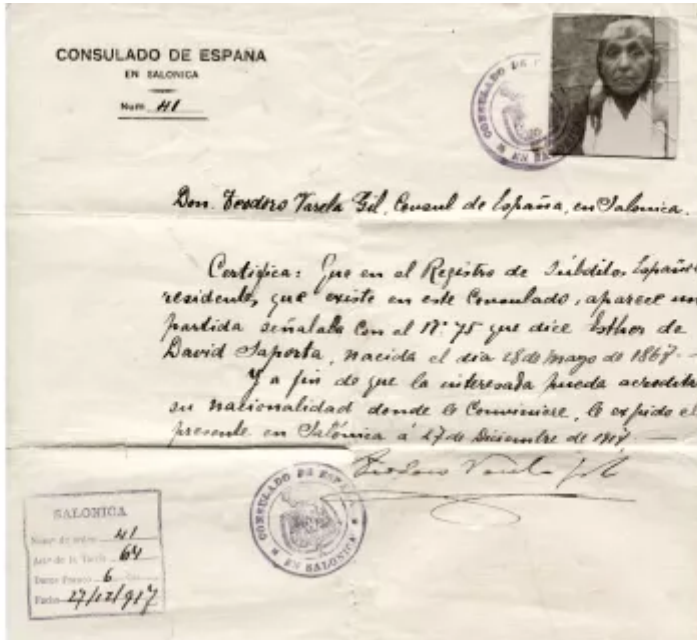 CONSULADO DE ESPAÑA
EN SALONICA
Num. 41
CONSULADO DE
EN SA
Don. Teodoro Varela Gil, Consul de España, en Salonica.
Certifica: Que en el Registro de Súbditos Español
residente, que existe en este Consulado, aparece un
partida señalada con el Nº 75 que dice Esther de
David Saporta, nacida el dia 28 de mayo de 1867.
Y a fin de que la interesada pueda acredita
su nacionalidad donde le Conviniere, le expido el
presente en Salónica á 27 de Diciembre de 1917.
Teodoro Varela Gil
CONSULADO DE ESPAÑA
EN SALONICA
SALONICA
de orden 41
de la Tarifa 64
6
Fecha 27/12/917